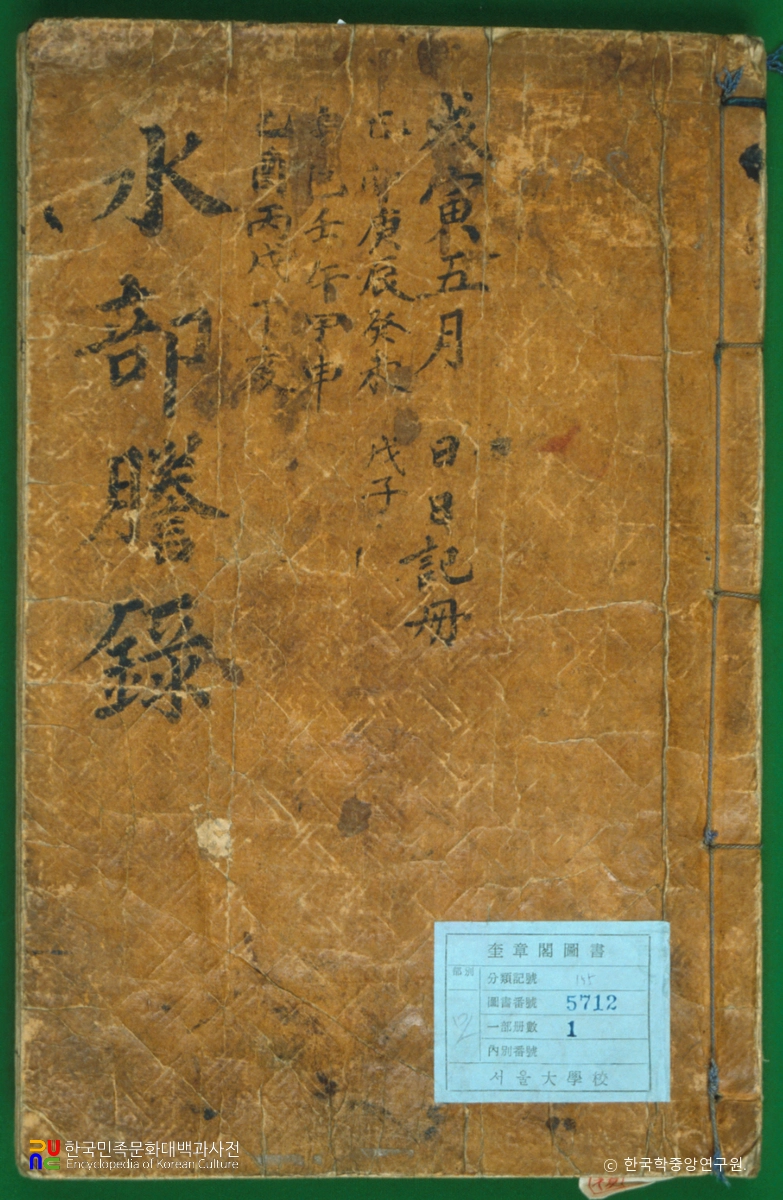 戊寅五月 日日記冊
庚辰癸未 戊子
辛巳壬午甲申
乙酉丙戌丁亥
水部謄錄
奎章閣圖書
部別
分類記號
圖書番號 5712
一部冊數 1
內別番號
서울大學校
한국민족문화대백과사전
Encyclopedia of Korean Culture
© 한국학중앙연구원.